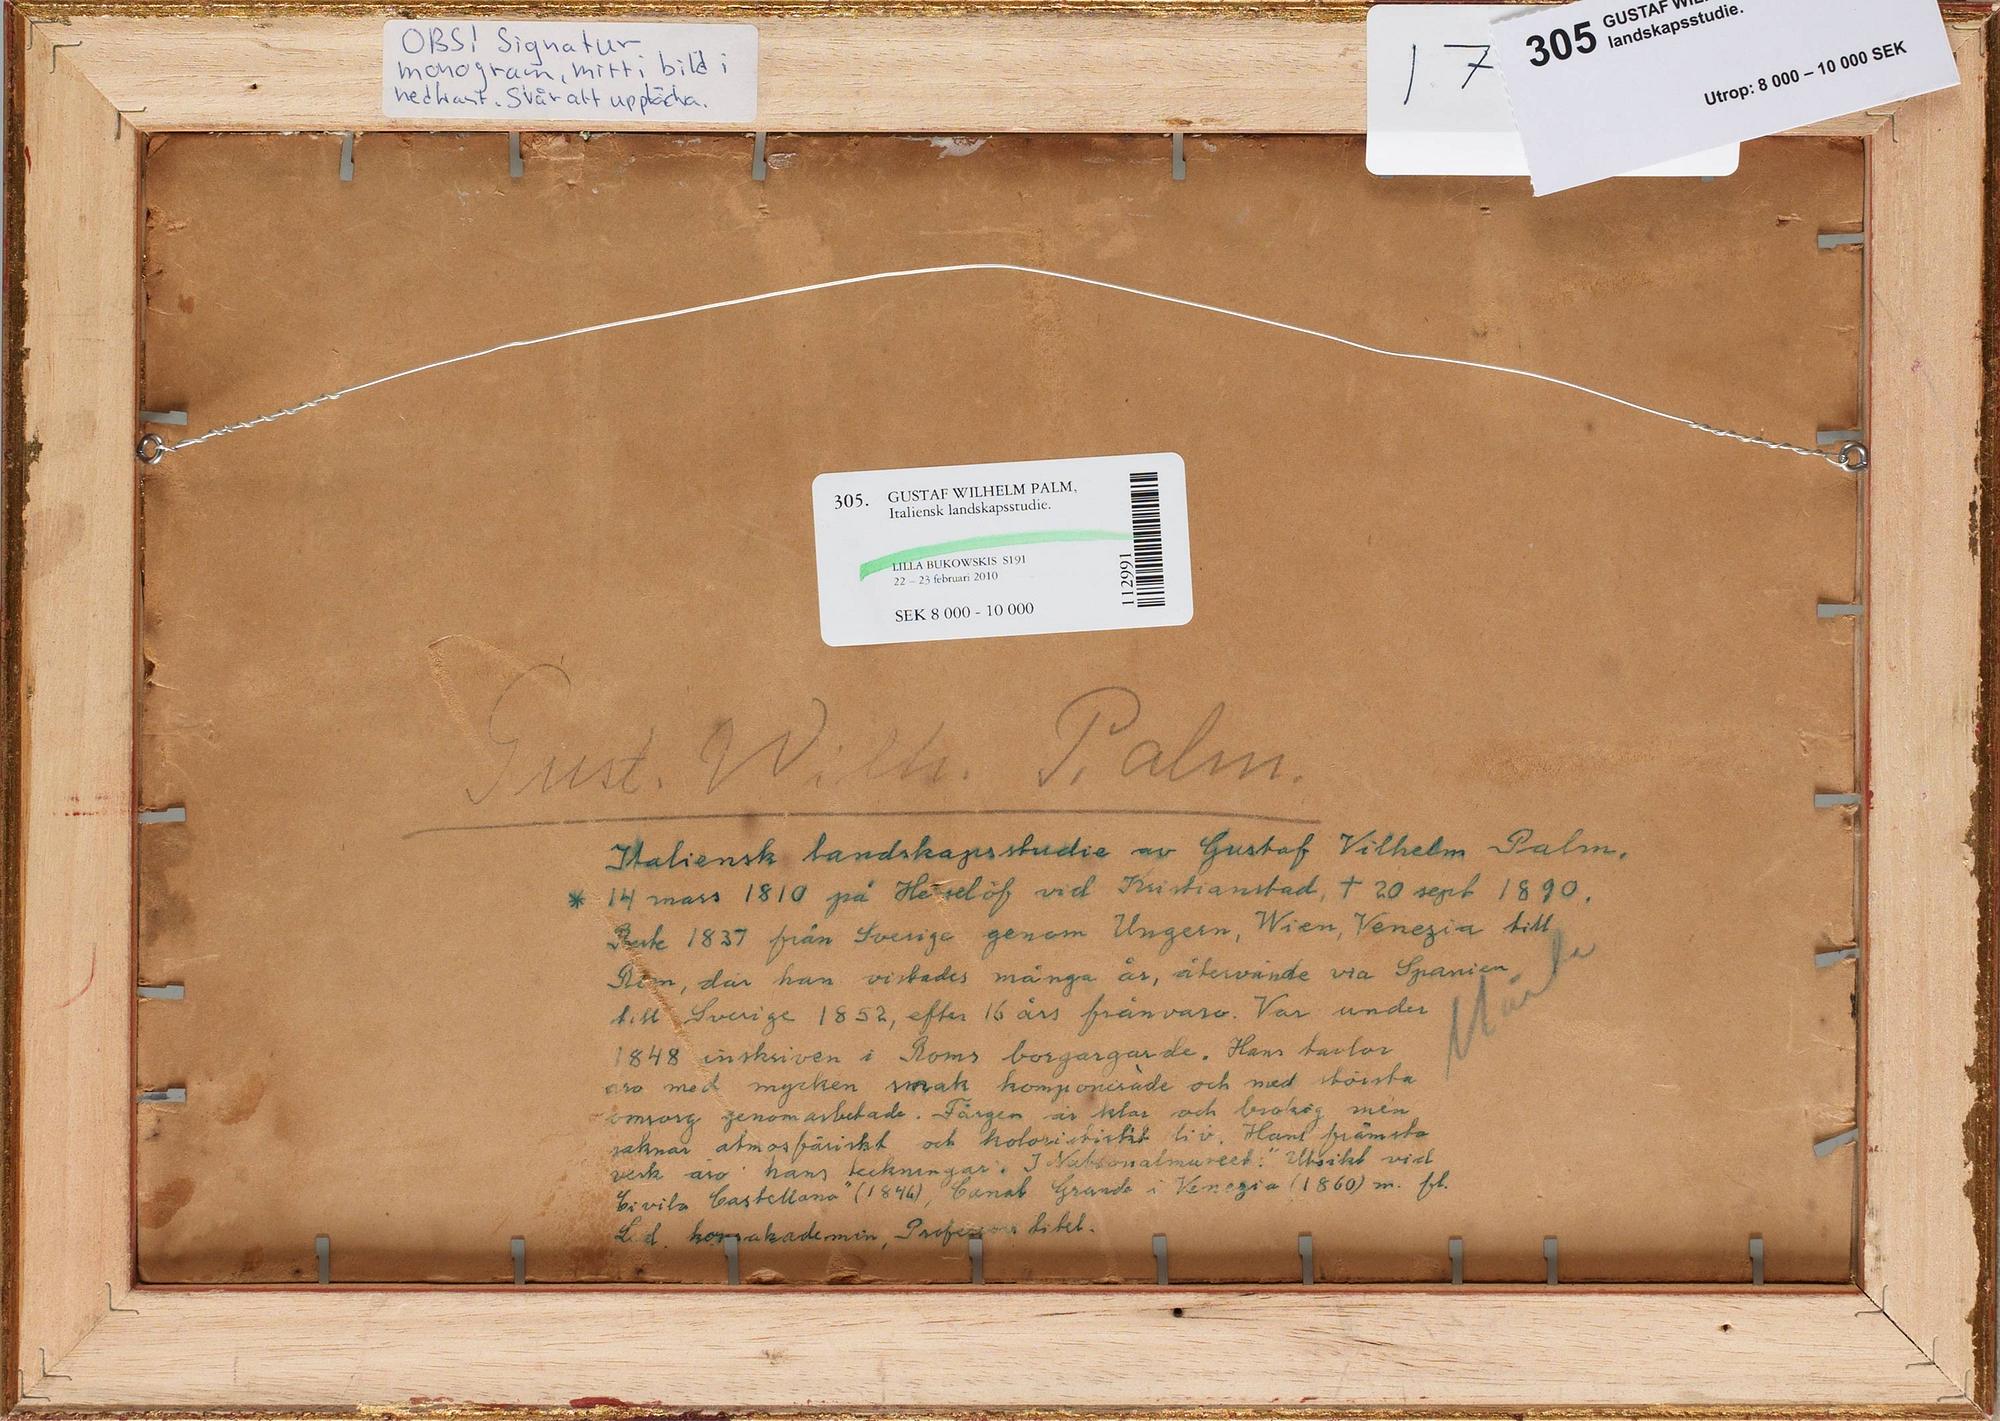 OBS! Signatur
monogram, mitt i bild i
nedkant. Svår att upptäcka.
17
305 GUSTAF WIL
landskapsstudie.
Utrop: 8 000 – 10 000 SEK
305. GUSTAF WILHELM PALM,
Italiensk landskapsstudie.
LILLA BUKOWSKIS S191
22 – 23 februari 2010
SEK 8 000 - 10 000
112991
Gust. Wilh. Palm.
Italiensk landskapsstudie av Gustaf Vilhelm Palm.
* 14 mars 1810 på vid Kristianstad, † 20 sept 1890.
Reste 1837 från Sverige genom Ungern, Wien, Venezia till
Rom, där han vistades många år, återvände via Spanien
till Sverige 1852, efter 16 års frånvaro. Var under
1848 inskriven i Roms borgargarde. Hans tavlor
äro med mycken smak komponerade och med största
omsorg genomarbetade. Färgen är klar och brokig men
saknar atmosfäriskt och koloristiskt liv. Hans främsta
verk äro hans teckningar. I Nationalmuseet: "Utsikt vid
Civita Castellana" (1846), Canal Grande i Venezia (1860) m. fl.
L. d. konstakademin, Professors titel.